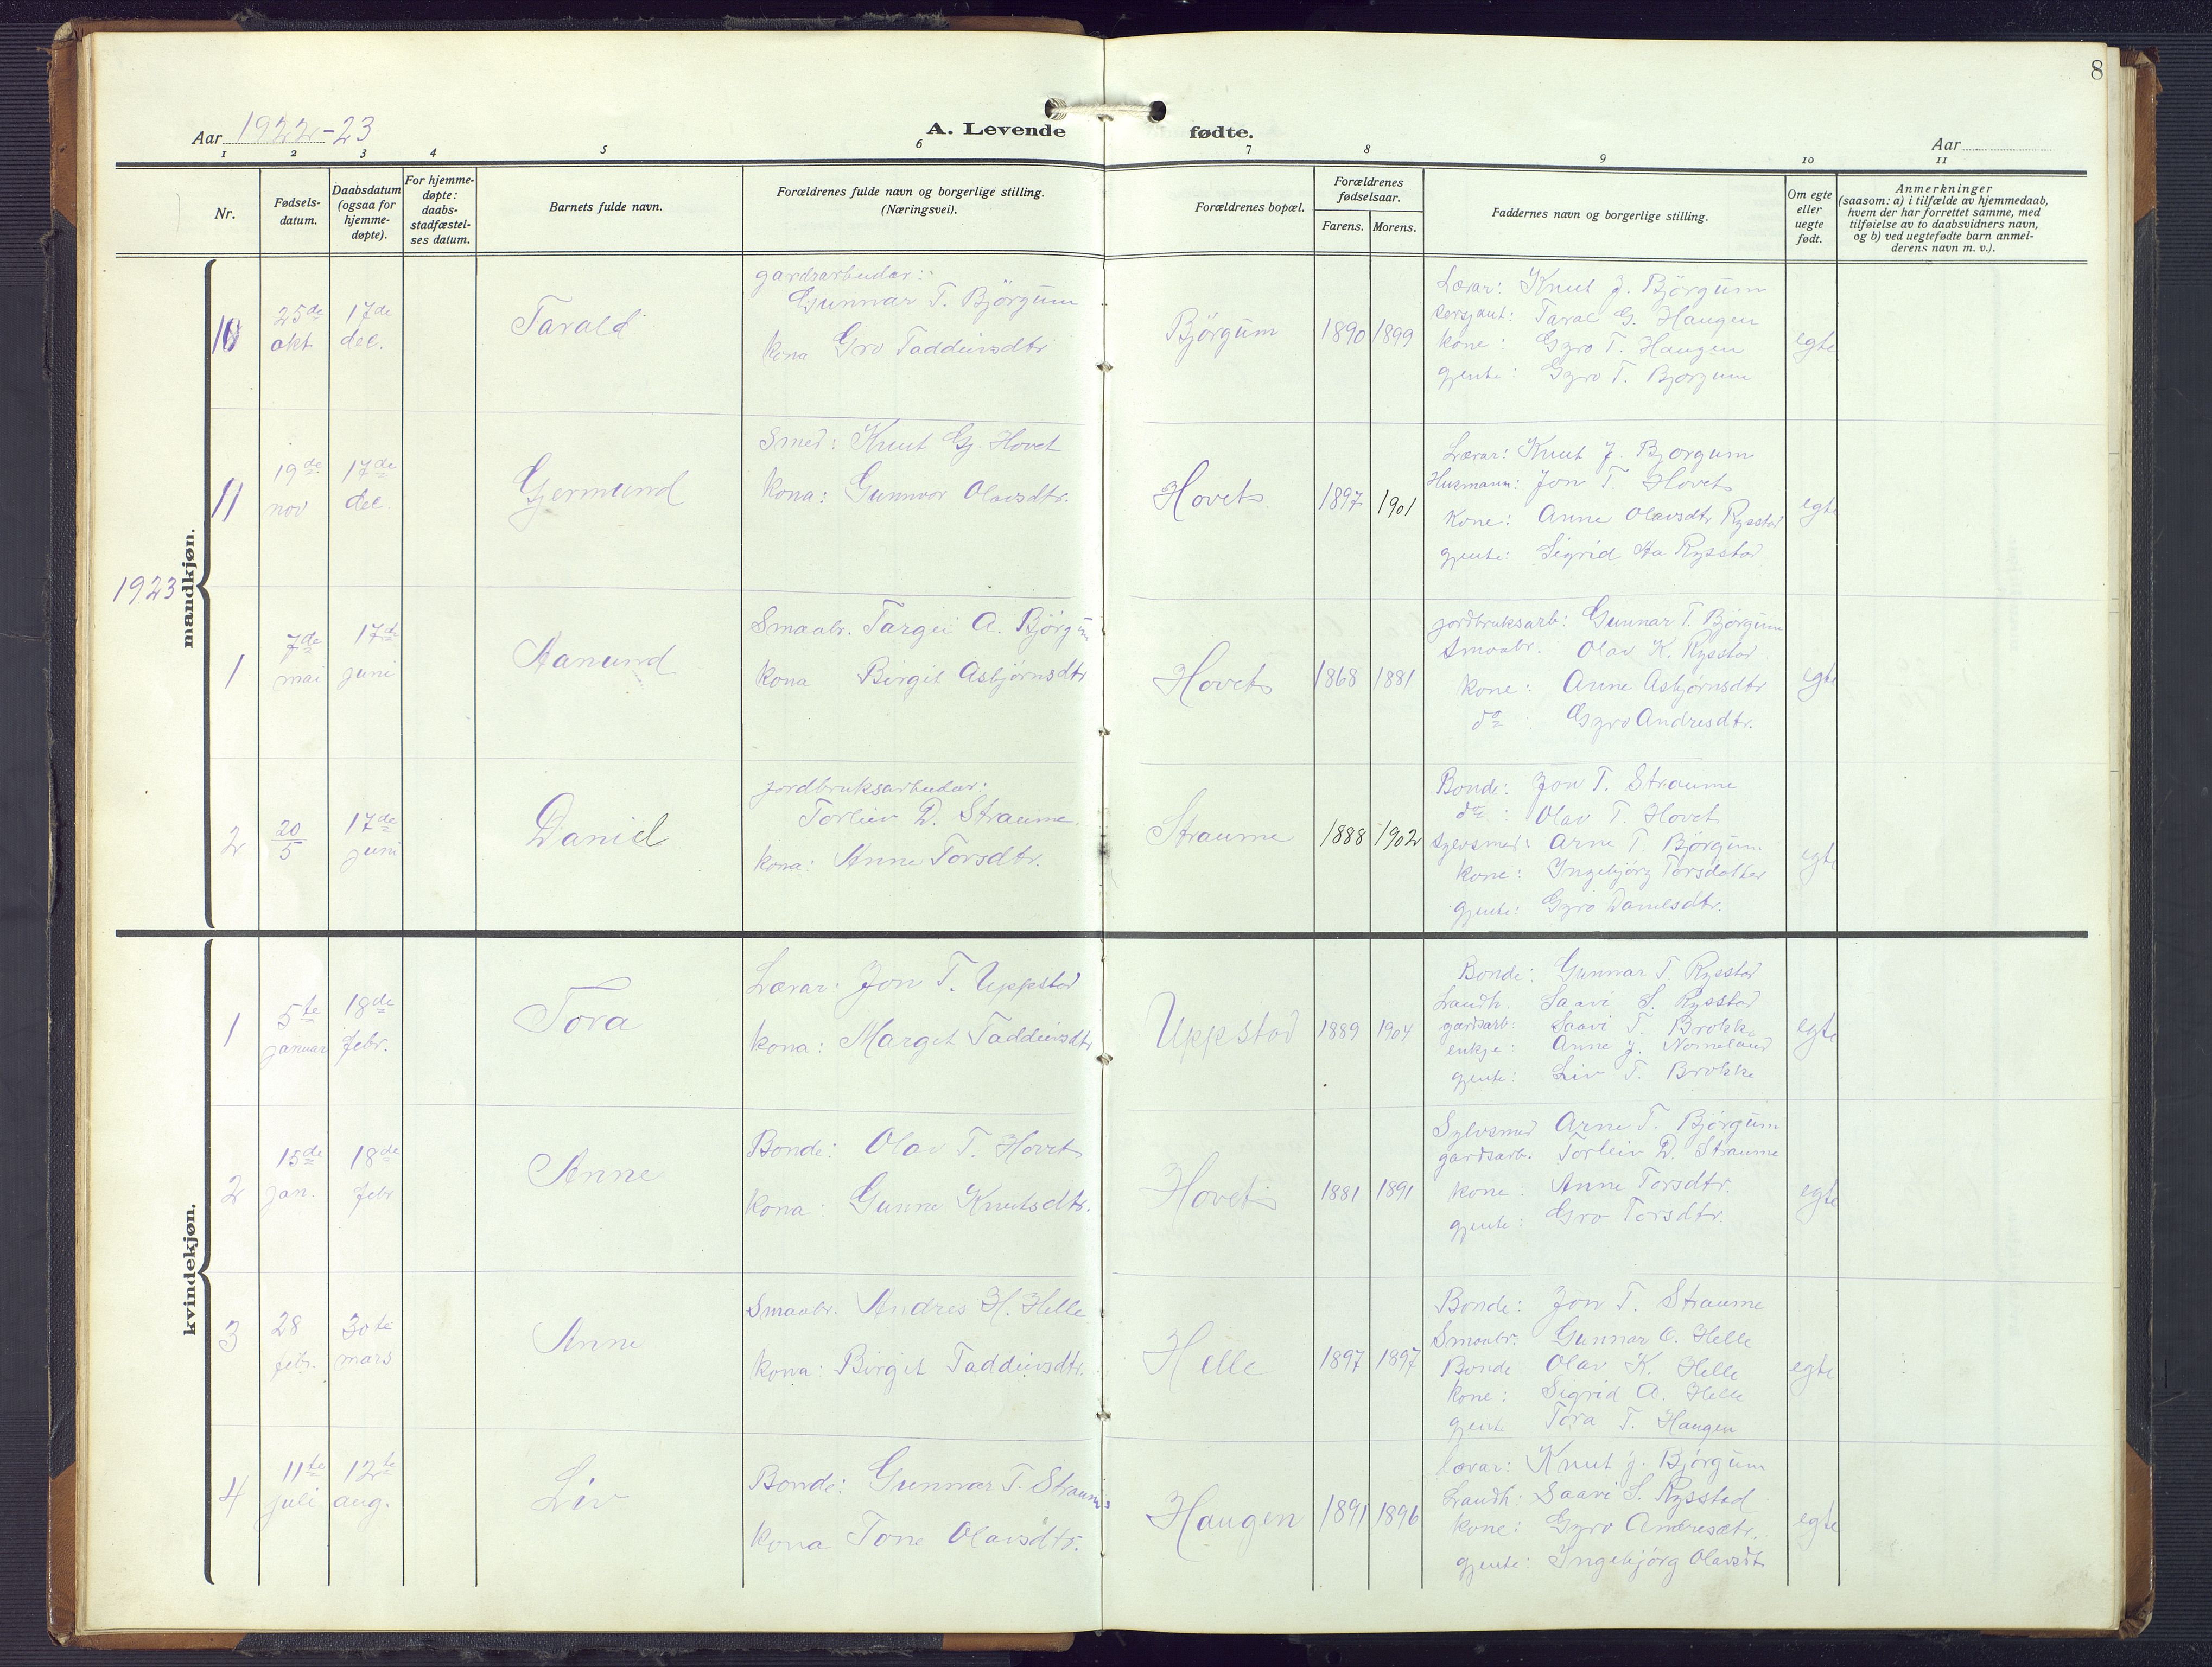 8
Aar 1922-23
A. Levende fødte.
Aar
1 2 3 4 5 6 7 8 9 10 11
Nr.
Fødsels-
datum.
Daabsdatum
(ogsaa for
hjemme-
døpte).
For hjemme-
døpte:
daabs-
stadfæstel-
ses datum.
Barnets fulde navn.
Forældrenes fulde navn og borgerlige stilling.
(Næringsvei).
Forældrenes bopæl.
Forældrenes
fødselsaar.
Farens. Morens.
Faddernes navn og borgerlige stilling.
Om egte
eller
uegte
født.
Anmerkninger
(saasom: a) i tilfælde av hjemmedaab,
hvem der har forrettet samme, med
tilføielse av to daabsvidners navn,
og b) ved uegtefødte barn anmel-
derens navn m. v.).
mandkjøn.
10
25de
okt
17de
dec.
Tarald
gardsarbeidar:
Gunnar T. Bjørgum
kona Gro Taddeivsdtr
Bjørgum
1890 1899
Lærar: Knut J. Bjørgum
Sersjant: Taral G. Haugen
kone: Gyro T. Haugen
gjente: Gyro T. Bjørgum
egte
11
19de
nov
17de
dec.
Gjermund
Smed: Knut Gj. Hovet
kona: Gunnvor Olavsdtr.
Hovet
1897 1901
Lærar: Knut J. Bjorgum
Husmann: Jon T. Hovet
Kone: Anne Olavsdtr Rysstad
gjente: Sigrid Aa Rysstad
egte
1923
1
7de
mai
17de
juni
Aanund
Smaabr. Targei A. Bjørgum
kona Birgit Asbjørnsdtr
Hovet
1868 1881
jordbruksarb: Gunnar T. Bjørgum
Smaabr. Olav K. Rysstad
kone: Anne Asbjørnsdtr
do : Gyro Andresdtr.
egte
2
20
5
17de
juni
Daniel
jordbruksarbeidar:
Torleiv D. Straume
kona: Anne Torsdtr.
Straume
1888 1902
Bonde: Jon T. Straume
do : Olav T. Hovet
Sylvsmed: Arne T. Bjørgum
kone: Ingebjørg Torsdotter
gjente: Gyro Danielsdtr.
egte
kvindekjøn.
1
5te
januar
18de
febr.
Tora
Lærar: Jon T. Uppstad
kona: Margit Taddeivsdtr
Uppstad
1889 1904
Bonde: Gunnar T. Rysstad
Landh. Saavi S. Rysstad
gardsarb: Saavi T. Brokke
enkje: Anne J. Nomeland
gjente: Liv T. Brokke
egte
2
15de
jan.
18de
febr
Anne
Bonde: Olav T. Hovet
kona: Gunne Knutsdtr.
Hovet
1881 1891
Sylvsmed Arne T. Bjørgum
gardsarb. Torleiv D. Straume
kone: Anne Torsdtr.
gjente: Gro Torsdtr.
egte
3
28
febr.
30te
mars
Anne
Smaabr. Andres H. Helle
kona: Birgit Taddeivsdtr.
Helle
1897 1897
Bonde: Jon T. Straume
Smaabr. Gunnar O. Helle
Bonde Olav K. Helle
kone: Sigrid A. Helle
gjente Tora T. Haugen
egte
4
11te
juli
12te
aug.
Liv
Bonde: Gunnar T. Straume
kona Tone Olavsdtr.
Haugen
1891 1896
lærar: Knut J. Bjørgum
Landh: Saavi S. Rysstad
kone: Gyro Andresdtr.
gjente: Ingebjørg Olavsdtr
egte